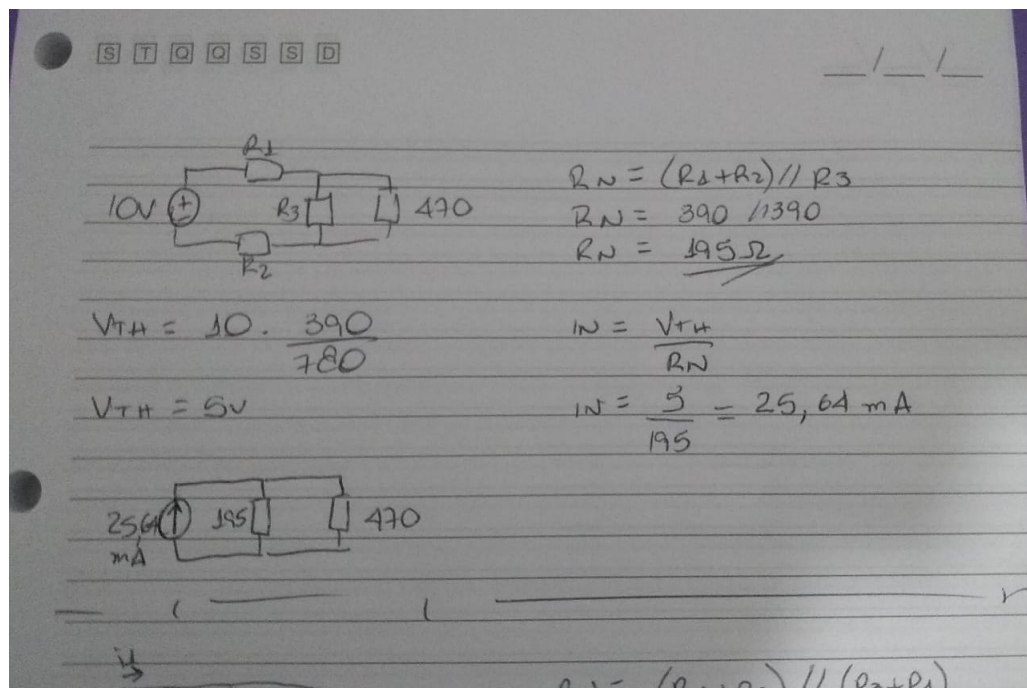 S T Q Q S S D
__/__/__
R1
10V
R3
470
R2
RN = (R1+R2)//R3
RN = 390 //390
RN = 195Ω
VTH = 10 . 390
780
VTH = 5V
IN = VTH
RN
IN = 5 = 25,64 mA
195
25,64
mA
195
470